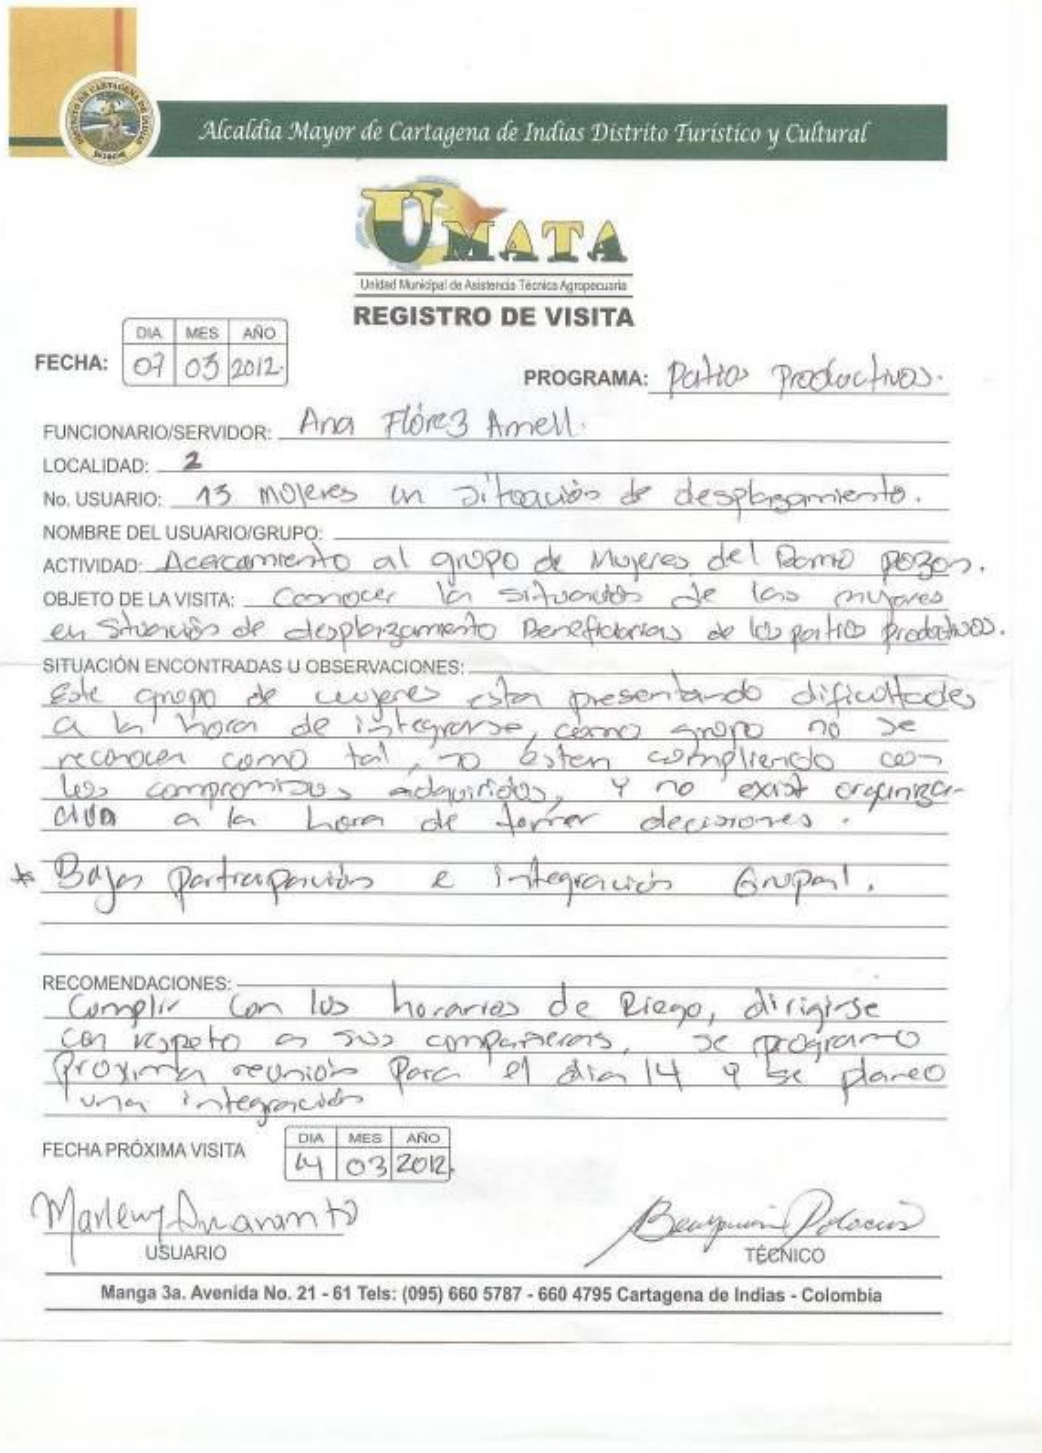 Alcaldía Mayor de Cartagena de Indias Distrito Turístico y Cultural
UMATA
Unidad Municipal de Asistencia Técnica Agropecuaria
REGISTRO DE VISITA
DIA MES AÑO
FECHA: 07 03 2012.
PROGRAMA: Patios Productivos.
FUNCIONARIO/SERVIDOR: Ana Flórez Amell.
LOCALIDAD: 2
No. USUARIO: 13 mujeres en situación de desplazamiento.
NOMBRE DEL USUARIO/GRUPO:
ACTIVIDAD: Acercamiento al grupo de Mujeres del Barrio pozon.
OBJETO DE LA VISITA: Conocer la situación de las mujeres
en situación de desplazamiento Beneficiarias de los patios productivos.
SITUACIÓN ENCONTRADAS U OBSERVACIONES:
Este grupo de mujeres esta presentando dificultades
a la hora de integrarse, como grupo no se
reconocen como tal, no estan cumpliendo con
los compromisos adquiridos, y no exist organiza-
cion a la hora de tomar decisiones.
* Baja participación e integración Grupal.
RECOMENDACIONES:
Cumplir con los horarios de Riego, dirigirse
con respeto a sus compañeras, se programo
proxima reunión para el dia 14 y se planeo
una integración
DIA MES AÑO
FECHA PRÓXIMA VISITA 14 03 2012.
Marleny
USUARIO
TÉCNICO
Manga 3a. Avenida No. 21 - 61 Tels: (095) 660 5787 - 660 4795 Cartagena de Indias - Colombia